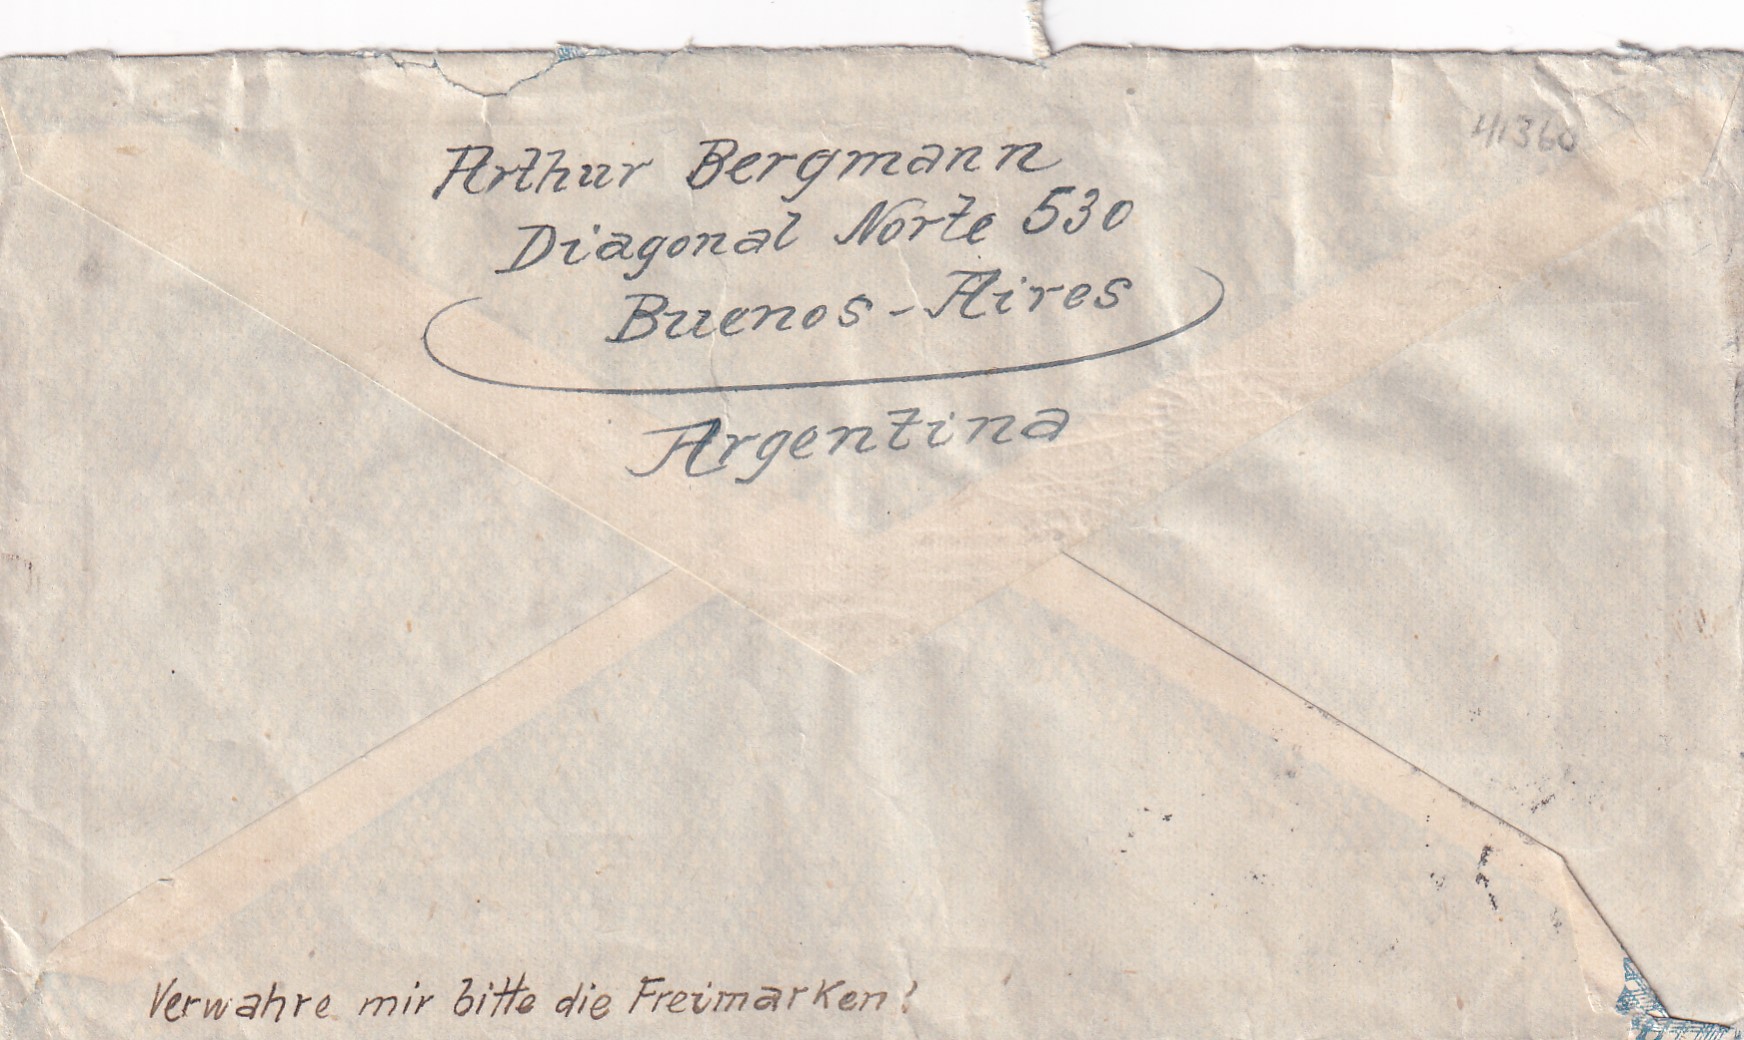 41360
Arthur Bergmann
Diagonal Norte 530
Buenos-Aires
Argentina
Verwahre mir bitte die Freimarken!